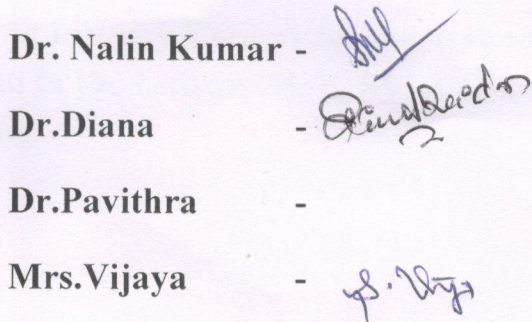 Dr. Nalin Kumar -
Dr.Diana -
Dr.Pavithra -
Mrs.Vijaya -